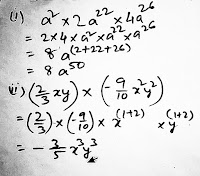 (i) a² × 2a²² × 4a²⁶
= 2 × 4 × a² × a²² × a²⁶
= 8 a⁽²⁺²²⁺²⁶⁾
= 8 a⁵⁰
ii) (2/3 xy) × (-9/10 x²y²)
= (2/3) × (-9/10) × x⁽¹⁺²⁾ × y⁽¹⁺²⁾
= -3/5 x³y³